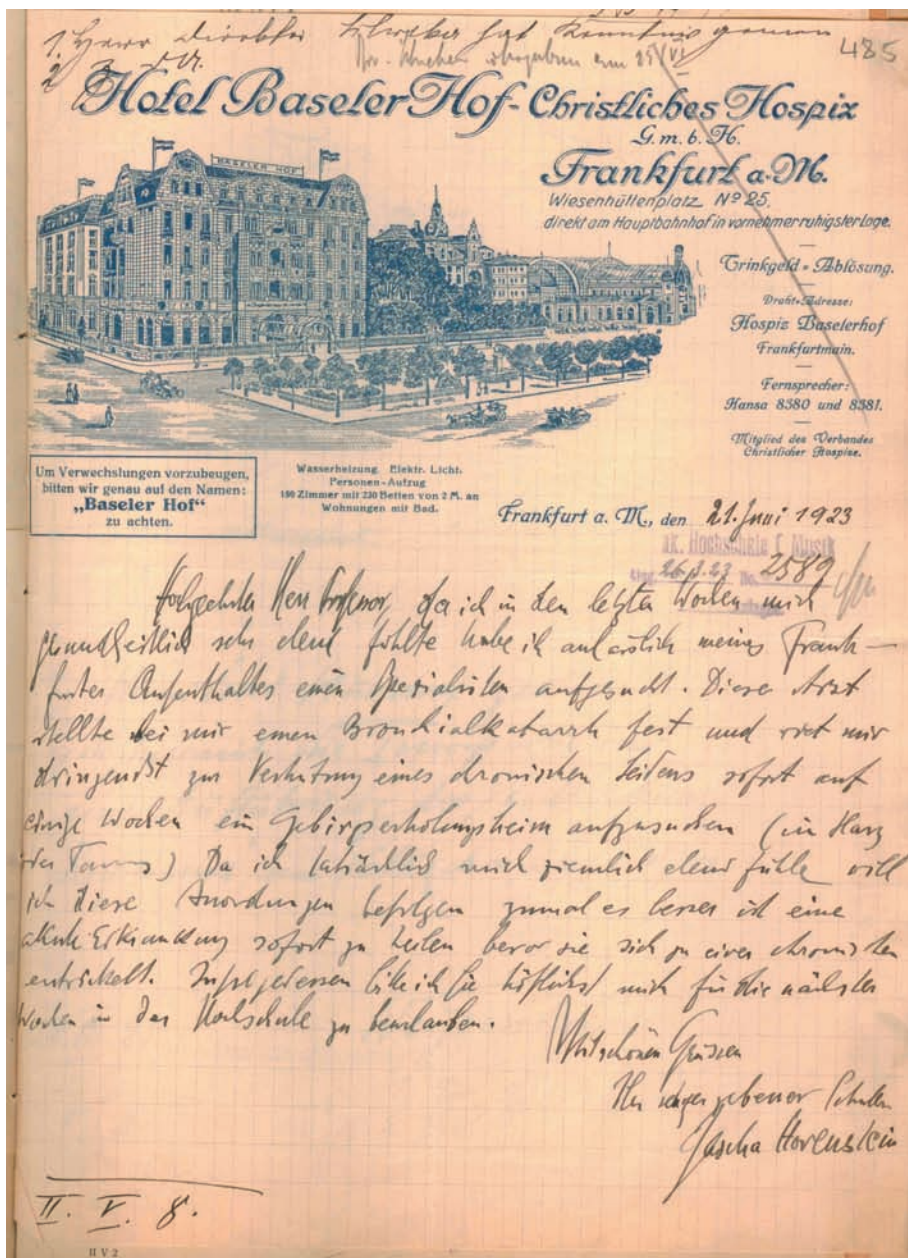 1. Herr Direktor Schreker hat Kenntnis genom
485
2
abgegeben am 25/VI
Hotel Baseler Hof - Christliches Hospiz
G. m. b. H.
Frankfurt a. M.
Wiesenhüttenplatz Nº 25,
direkt am Hauptbahnhof in vornehmer ruhigster Lage.
BASELER HOF
Trinkgeld-Ablösung.
Draht-Adresse:
Hospiz Baselerhof
Frankfurtmain.
Fernsprecher:
Hansa 8380 und 8381.
Mitglied des Verbandes
Christlicher Hospize.
Um Verwechslungen vorzubeugen,
bitten wir genau auf den Namen:
„Baseler Hof“
zu achten.
Wasserheizung. Elektr. Licht.
Personen-Aufzug
190 Zimmer mit 230 Betten von 2 M. an
Wohnungen mit Bad.
Frankfurt a. M., den 21. Juni 1923
ak. Hochschule f. Musik
2589
Hochgeehrter Herr Professor, da ich in den letzten Wochen mich
gesundheitlich sehr elend fühlte habe ich anlässlich meines Frank-
furter Aufenthaltes einen Spezialisten aufgesucht. Dieser Arzt
stellte bei mir einen Bronchialkatarrh fest und riet mir
dringendst zur Verhütung eines chronischen Leidens sofort auf
einige Wochen ein Gebirgserholungsheim aufzusuchen (im Harz
oder Taunus) Da ich tatsächlich mich ziemlich elend fühle will
ich diese Anordnungen befolgen zumal es besser ist eine
akute Erkrankung sofort zu heilen bevor sie sich zu einer chronischen
entwickelt. Infolgedessen bitte ich Sie höflichst mich für die nächsten
Wochen in der Hochschule zu beurlauben.
Mit schönen Grüssen
Ihr sehr ergebener Schüler
Jascha Horenstein
II. V. 8.
II V 2